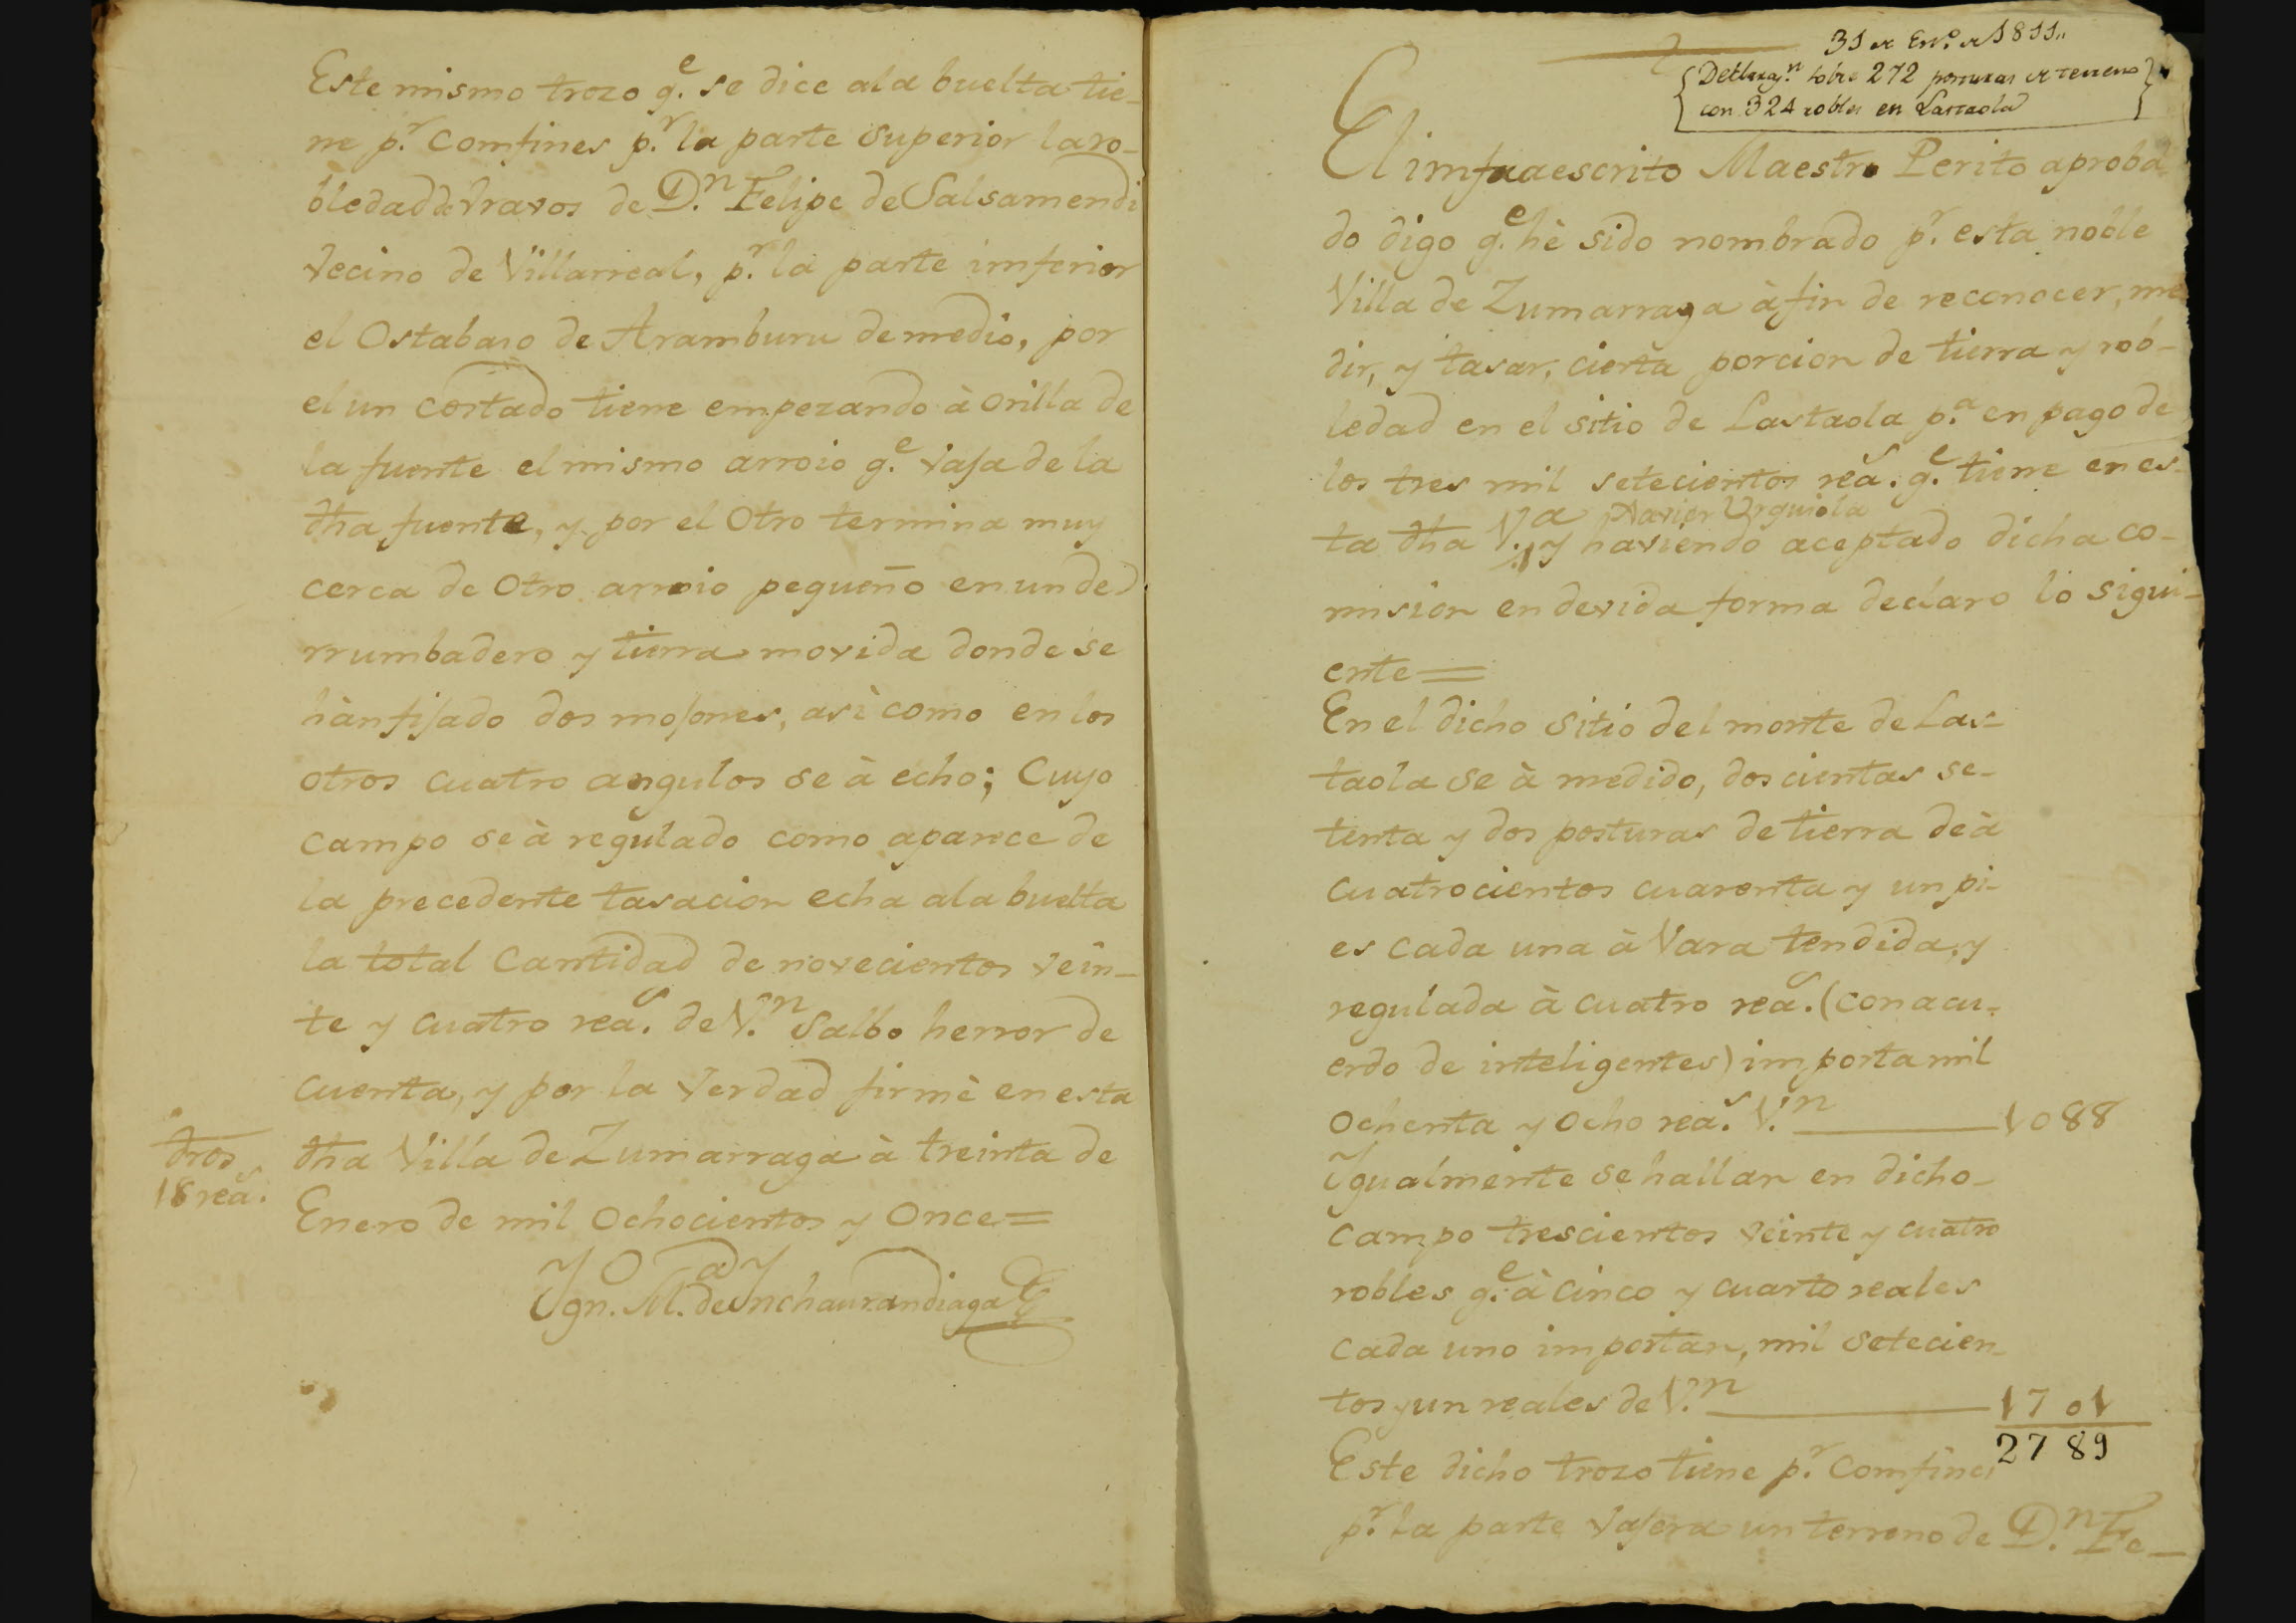 Este mismo trozo q.e se dice ala buelta tie-
ne p.r Comfines p.r la parte Superior la ro-
bledad de bravos de D.n Felipe de Salsamendi
vecino de Villarreal, p.r la parte imferior
el Ostabaso de Aramburu de medio, por
el un Costado tiene empezando à orilla de
la fuente el mismo arroio q.e vaja de la
dha fuente, y por el Otro termina muy
cerca de Otro arroio pequeño en un de
rrumbadero y tierra movida donde se
hàn fijado dos mojones, asì como en los
otros cuatro angulos se à echo; Cuyo
campo se à regulado como aparece de
la precedente tasacion echa ala buelta
la total Cantidad de novecientos vein-
te y cuatro rea.s de V.n Salbo herror de
cuenta, y por la Verdad firmè en esta
dha Villa de Zumarraga à treinta de
Enero de mil Ochocientos y Once=
dros
18 rea.s
Ygn.o M.a de Ynchaurandiaga
31 de En.o de 1811,,
Declarac.n sobre 272 posturas de terreno
con 324 robles en Lastaola
El imfraescrito Maestro Perito aproba-
do digo q.e hè sido nombrado p.r esta noble
Villa de Zumarraga à fin de reconocer, me
dir, y tasar, cierta porcion de tierra y rob-
ledad en el sitio de Lastaola p.a en pago de
los tres mil setecientos rea.s q.e tiene en es-
Xavier Urguiola
ta dha V.a y haviendo aceptado dicha co-
mision en devida forma declaro lo sigui-
ente=
En el dicho Sitio del monte de Las-
taola se à medido, dos cientas se-
tenta y dos posturas de tierra de à
cuatrocientos cuarenta y un pi-
es cada una à Vara tendida, y
regulada à cuatro rea.s (con acu-
erdo de inteligentes) importa mil
ochenta y ocho rea.s V.n 1088
Ygualmente se hallan en dicho-
campo trescientos veinte y cuatro
robles q.e à cinco y cuarto reales
cada uno importan, mil setecien-
tos y un reales de V.n 1701
2789
Este dicho trozo tiene p.r Comfines
p.r la parte vajera un terreno de D.n Fe-